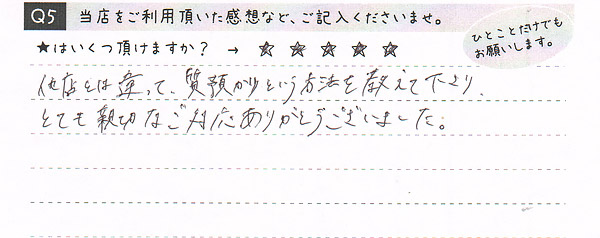 Q5 当店をご利用頂いた感想など、ご記入くださいませ。
★はいくつ頂けますか？ → ☆ ☆ ☆ ☆ ☆
ひとことだけでも
お願いします。
他店とは違って、質預かりという方法を教えて下さり、
とても親切なご対応ありがとうございました。